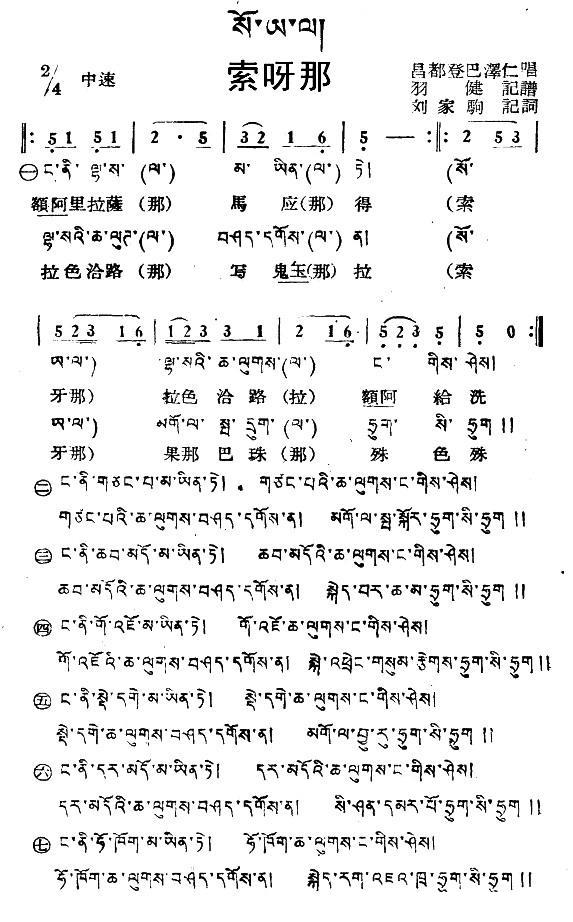 སོ་ཨ་ལ།
索呀那
2/4 中速
昌都登巴澤仁唱
羽健記譜
刘家駒記詞
‖: 51 51 | 2 · 5 | 32 1 6 | 5 — :‖: 2 5 3 |
㊀ ང་ནི་ལྷ་ས་(ལ་) མ་ཡིན་(ལ་) ཏེ། (སོ་
額阿里拉薩(那) 馬应(那)得 (索
ལྷ་སའི་ཆ་ལུཊ་(ལ་) བཤད་དགོས་(ལ་) ན། (སོ་
拉色治路(那) 写鬼玉(那)拉 (索
| 5 2 3 1 6 | 1 2 3 3 1 | 2 1 6 | 5 2 3 5 | 5 0 :‖
ཨ་ལ་) ལྷ་སའི་ཆ་ལུགས་(ལ་) ང་གིས་ཤེས།
牙那) 拉色洽路(拉) 額阿給洗
ཨ་ལ་) མགོ་ལ་སྤ་དྲུག་(ལ་) ཧྲུག་སི་ཧྲུག །།
牙那) 果那巴珠(那) 殊色殊
㊁ ང་ནི་གཙང་པ་མ་ཡིན་ཏེ། གཙང་པའི་ཆ་ལུགས་ང་གིས་ཤེས།
གཙང་པའི་ཆ་ལུགས་བཤད་དགོས་ན། མགོ་ལ་སྤ་སྐོར་ཧྲུག་སི་ཧྲུག །།
㊂ ང་ནི་ཆབ་མདོ་མ་ཡིན་ཏེ། ཆབ་མདོའི་ཆ་ལུགས་ང་གིས་ཤེས།
ཆབ་མདོའི་ཆ་ལུགས་བཤད་དགོས་ན། སྐེད་བར་ཆ་མ་ཧྲུག་སི་ཧྲུག །།
㊃ ང་ནི་གོ་འཇོ་མ་ཡིན་ཏེ། གོ་འཇོ་ཆ་ལུགས་ང་གིས་ཤེས།
གོ་འཇོའི་ཆ་ལུགས་བཤད་དགོས་ན། སྐེ་འཕྲེང་གསུམ་རྩེགས་ཧྲུག་སི་ཧྲུག །།
㊄ ང་ནི་སྡེ་དགེ་མ་ཡིན་ཏེ། སྡེ་དགེ་ཆ་ལུགས་ང་གིས་ཤེས།
སྡེ་དགེ་ཆ་ལུགས་བཤད་དགོས་ན། མགོ་ལ་བྱུ་རུ་ཧྲུག་སི་ཧྲུག །།
㊅ ང་ནི་དར་མདོ་མ་ཡིན་ཏེ། དར་མདོའི་ཆ་ལུགས་ང་གིས་ཤེས།
དར་མདོའི་ཆ་ལུགས་བཤད་དགོས་ན། སི་ཤན་དམར་པོ་ཧྲུག་སི་ཧྲུག །།
㊆ ང་ནི་ཧོ་ཁོག་མ་ཡིན་ཏེ། ཧོ་ཁོག་ཆ་ལུགས་ང་གིས་ཤེས།
ཧོ་ཁོག་ཆ་ལུགས་བཤད་དགོས་ན། སྐེད་རག་འཇའ་ཁྲ་ཧྲུག་སི་ཧྲུག །།